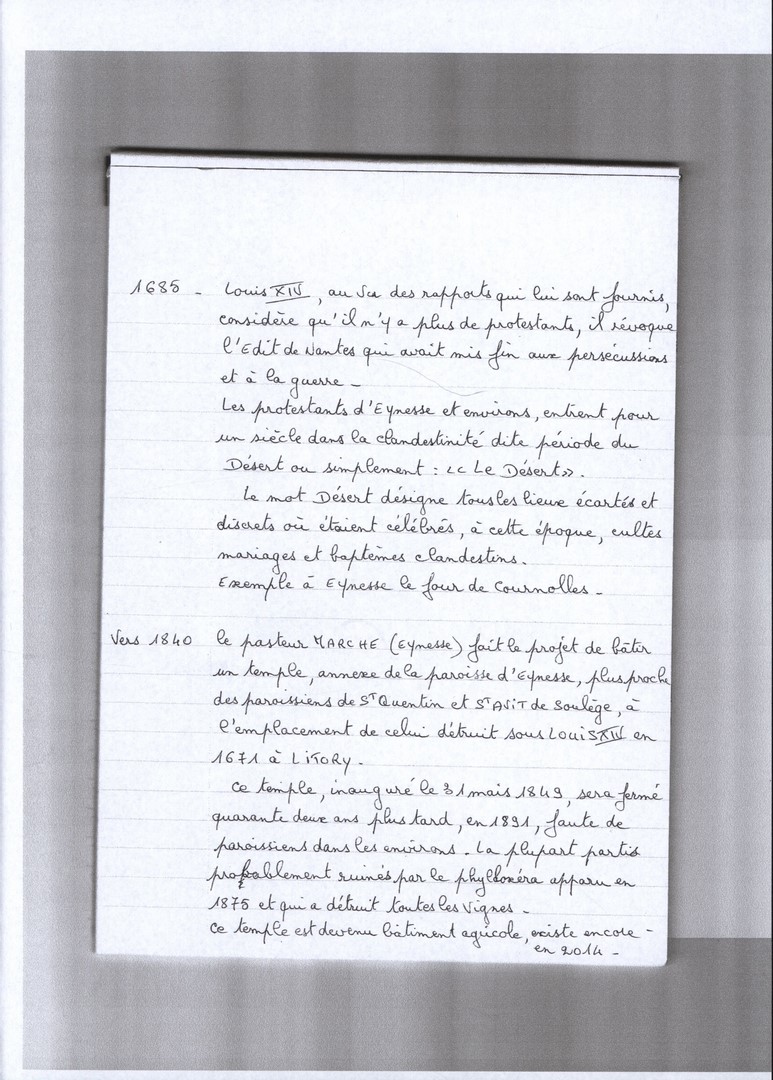 1685 - Louis XIV, au vu des rapports qui lui sont fournis,
considère qu'il n'y a plus de protestants, il révoque
l'Edit de Nantes qui avait mis fin aux persécussions
et à la guerre -
Les protestants d'Eynesse et environs, entrent pour
un siècle dans la clandestinité dite période du
Désert ou simplement : << Le Désert >>.
Le mot Désert désigne tous les lieux écartés et
discrets où étaient célébrés, à cette époque, cultes
mariages et baptèmes clandestins.
Exemple à Eynesse le four de Cournolles -
Vers 1840 le pasteur MARCHE (Eynesse) fait le projet de bâtir
un temple, annexe de la paroisse d'Eynesse, plus proche
des paroissiens de ST Quentin et ST AVIT de Soulège, à
l'emplacement de celui détruit sous Louis XIV en
1671 à LITORY -
Ce temple, inauguré le 31 mais 1849, sera fermé
quarante deux ans plus tard, en 1891, faute de
paroissiens dans les environs. La plupart partis
probablement ruinés par le phylloxéra apparu en
1875 et qui a détruit toutes les vignes -
Ce temple est devenu bâtiment agricole, existe encore -
en 2014 -